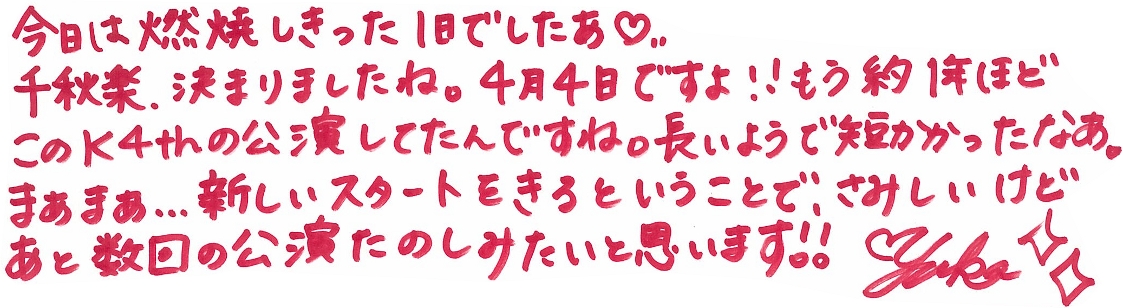 今日は燃焼しきった1日でしたあ♡..
千秋楽、決まりましたね。4月4日ですよ!!もう約1年ほど
このK4thの公演してたんですね。長いようで短かかったなあ。
まぁまぁ...新しいスタートをきるということで、さみしいけど
あと数回の公演たのしみたいと思います!! ♡Yuka